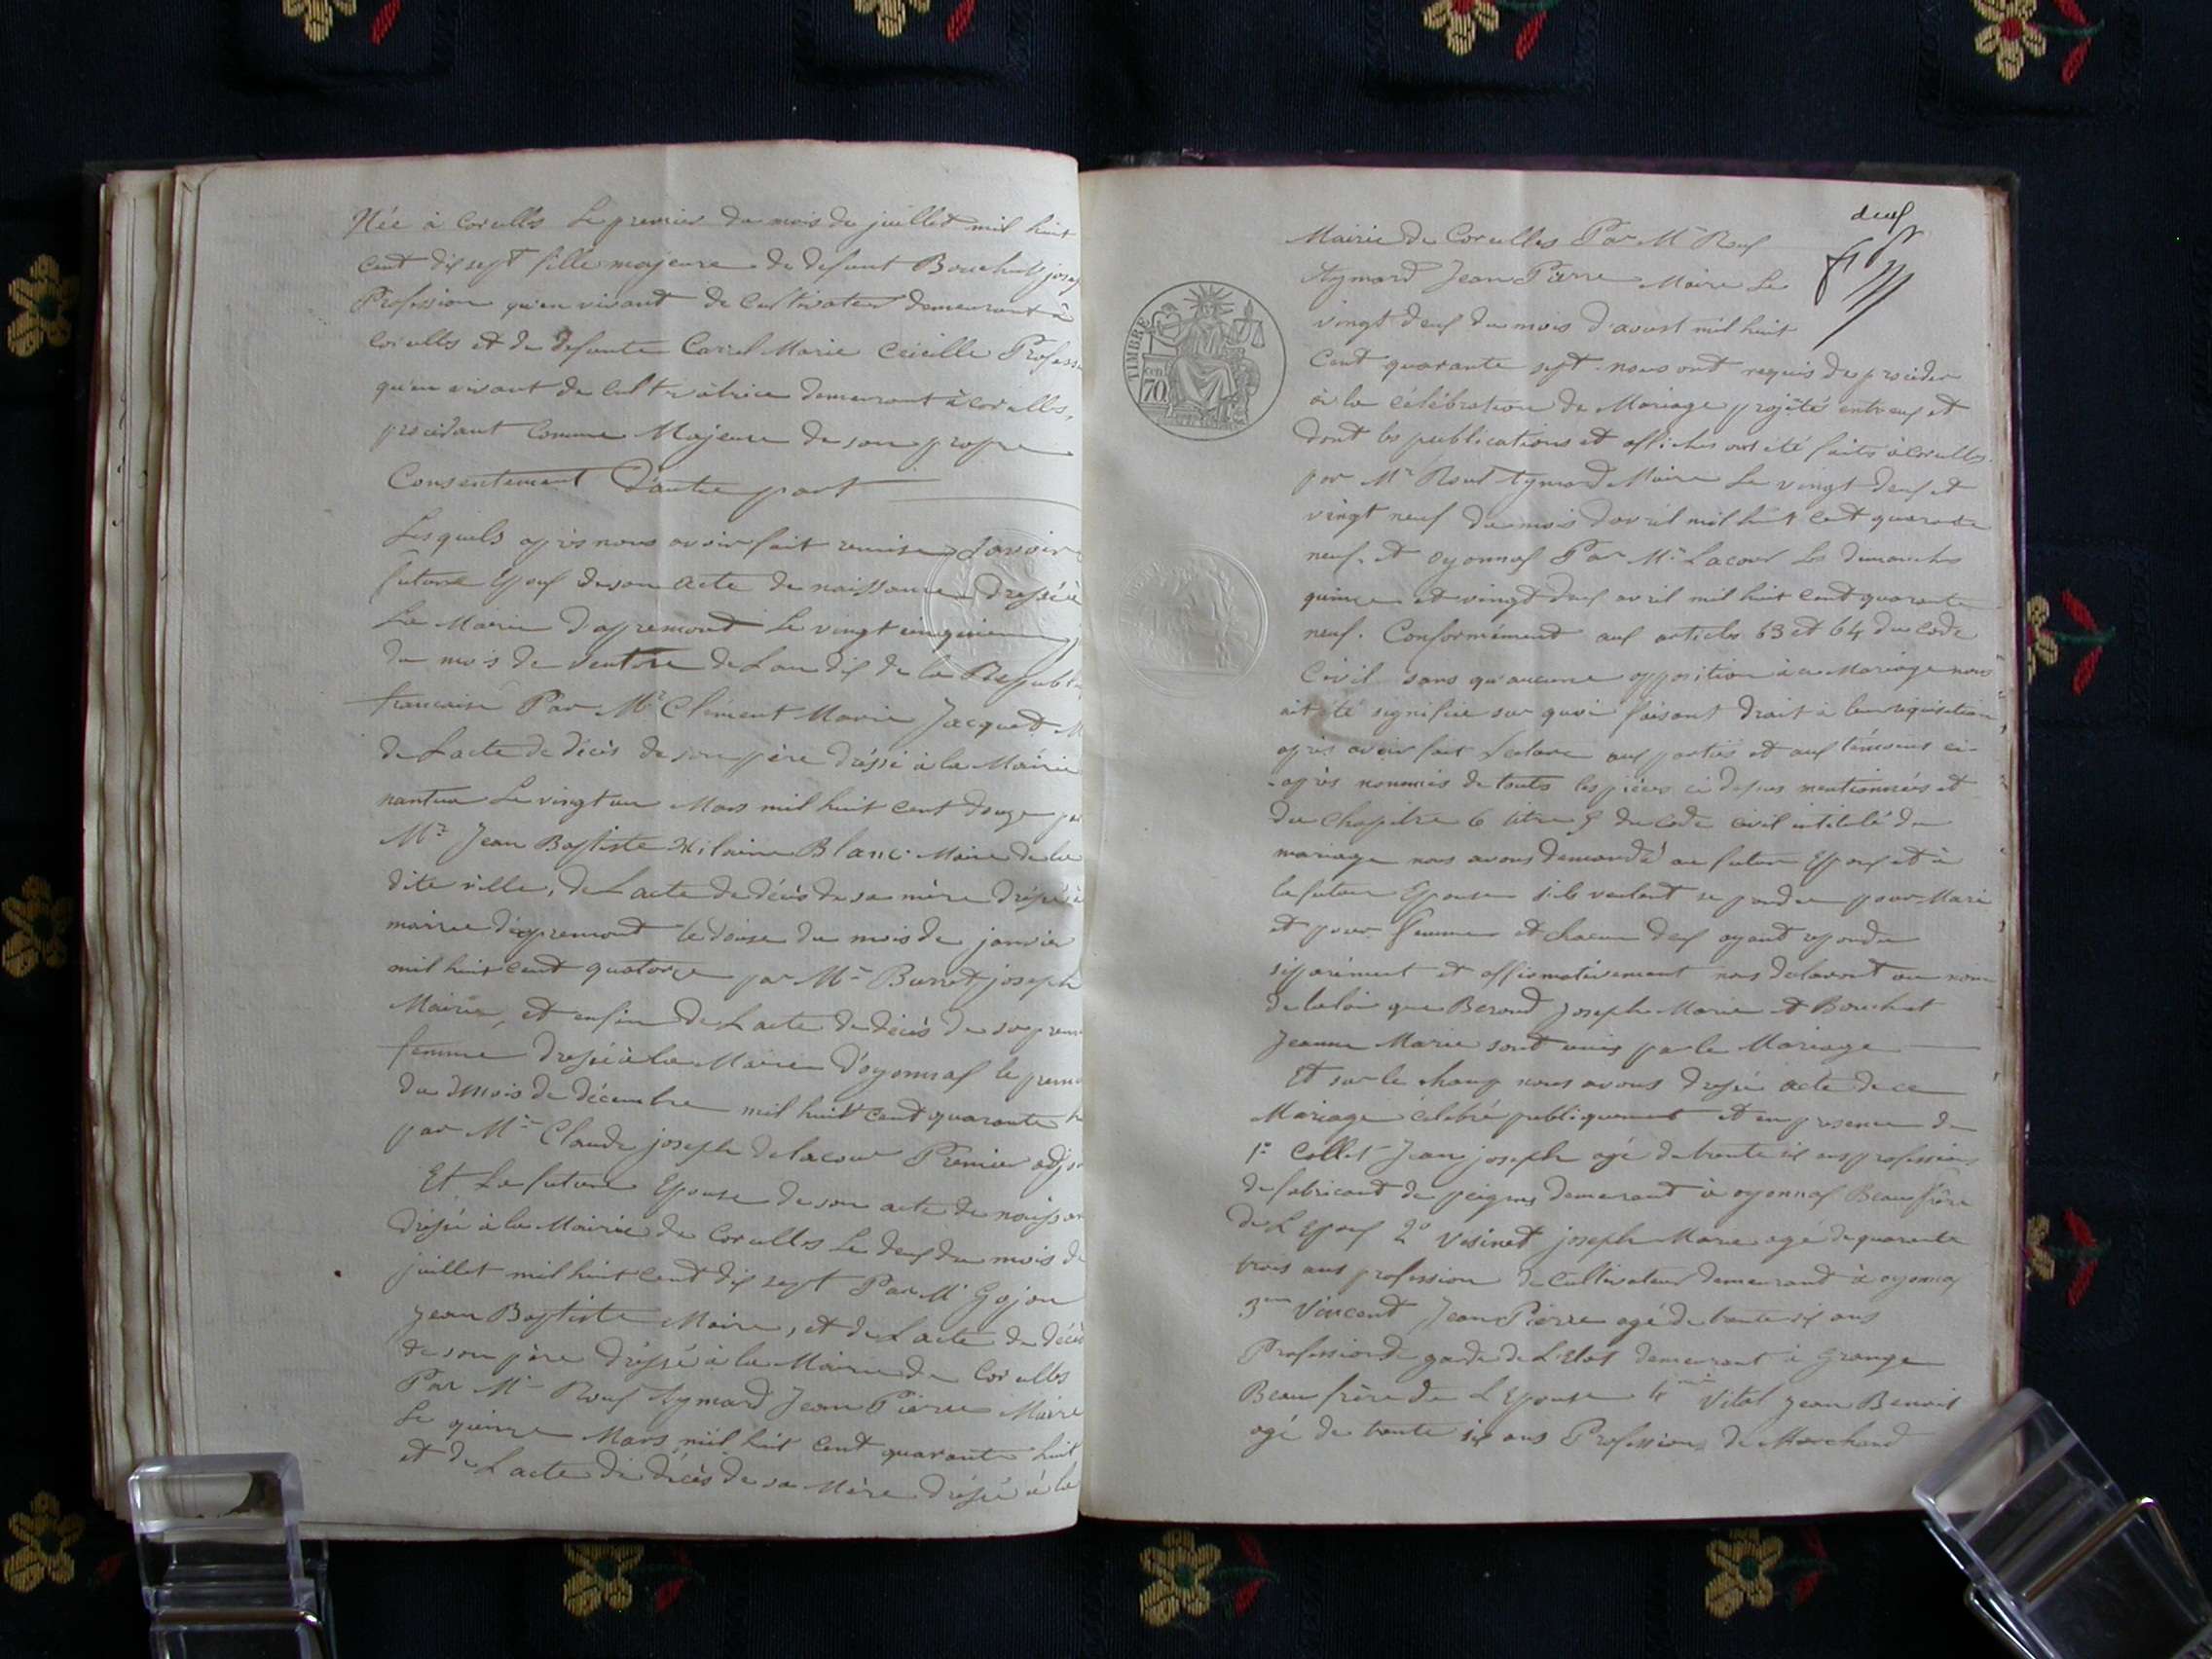 Née à Corcelles Le premier du mois de juillet mil huit
cent dix sept fille majeure de defunt Bouchet jose
Profession qu'en vivant de Cultivateur demeurant à
Corcelles et de defunte Carrel Marie Cécille Profess
qu'en vivant de Cultivatrice demeurant à Corcelles,
procédant Comme Majeure de son propre
Consentement D'autre part
Lesquels après nous avoir fait remise Savoir
future Epoux de son acte de naissance dressé à
La Mairie d'apremont Le vingt cinquieme j
du mois de Ventose de Lan dix de la Republi
francaise Par Mr Clément Marie Jacquet M
de Lacte de décès de son père dréssé à la Mairie
nantua Le vingt un Mars mil huit cent douze pa
Mr Jean Baptiste Hilaire Blanc Maire de la
dite ville, de Lacte de décès de sa mère dréssé à
mairie d'apremont le douse du mois de janvier
mil huit cent quatorze par Mr Burret joseph
Maire, et enfin de Lacte de décès de sa prem
femme dressé à la Mairie d'oyonnax le premi
du mois de décembre mil huit cent quarante h
par Mr Claude joseph delacour Premier adjo
Et La future Epouse de son acte de naissan
dréssé à la Mairie de Corcelles Le deux du mois de
juillet mil huit cent dix sept Par Mr Gojon
Jean Baptiste Maire, et de Lacte de décès
de son père dréssé à la Mairie de Corcelles
Par Mr Roux Aymard Jean Pierre Maire
Le quinze Mars mil huit cent quarante huit
et de Lacte de décès de sa Mère dréssé à la
deux
Mairie de Corcelles Par Mr Roux
Aymard Jean Pierre Maire Le
vingt deux du mois d'aoust mil huit
Cent quarante sept. nous ont requis de procéder
à la célébration de Mariage projété entreux et
dont les publications et affiches ont été faits à Corcelles.
par Mr Roux Aymard Maire Le vingt deux et
vingt neuf du mois davril mil huit cent quarante
neuf. et oyonnax Par Mr Lacour Les dimanches
quinze et vingt deux avril mil huit cent quarante
neuf. Conformément aux articles 63 et 64 du Code
Civil sans qu'aucune opposition à ce Mariage nous
ait été signifiée sur quoi faisant droit à leur réquisition
après avoir fait Lecture aux parties et aux témoins ci-
après nommés de touts les pièces ci dessus mentionnées et
du Chapitre 6 titre 5 du Code civil intitulé du
mariage nous avons demandé au futur Epoux et à
la future Epouse s'ils veulent se prendre pour Mari
et pour Femme et chacun deux ayant repondu
séparément et affirmativement nous déclarons au nom
de la loi que Beroud Joseph Marie et Bouchet
Jeanne Marie sont unis par le Mariage
Et sur le champ nous avons dressé acte de ce
Mariage célébré publiquement et en presence de
1º Collet Jean joseph agé de trente six ans profession
de fabricant de peignes demeurant à oyonnax Beau frère
de L'Epoux 2º Vésinet joseph Marie agé de quarante
trois ans profession de Cultivateur demeurant à oyonnax
3eme Vincent Jean Pierre agé de trente six ans
Profession de garde de L'Etat demeurant à Grange
Beau frère de L'Epouse 4eme Vital Jean Benoit
agé de trente six ans Profession de Marchand
TIMBRE
70